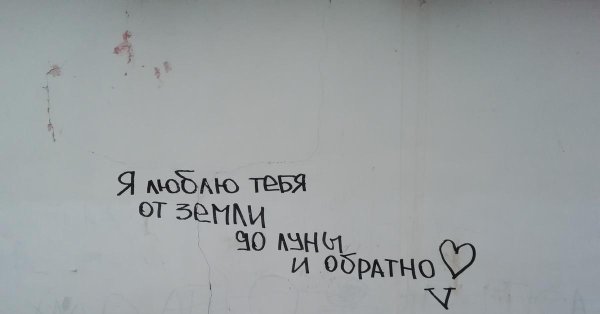 Я люблю тебя
от земли
до луны
и обратно
V